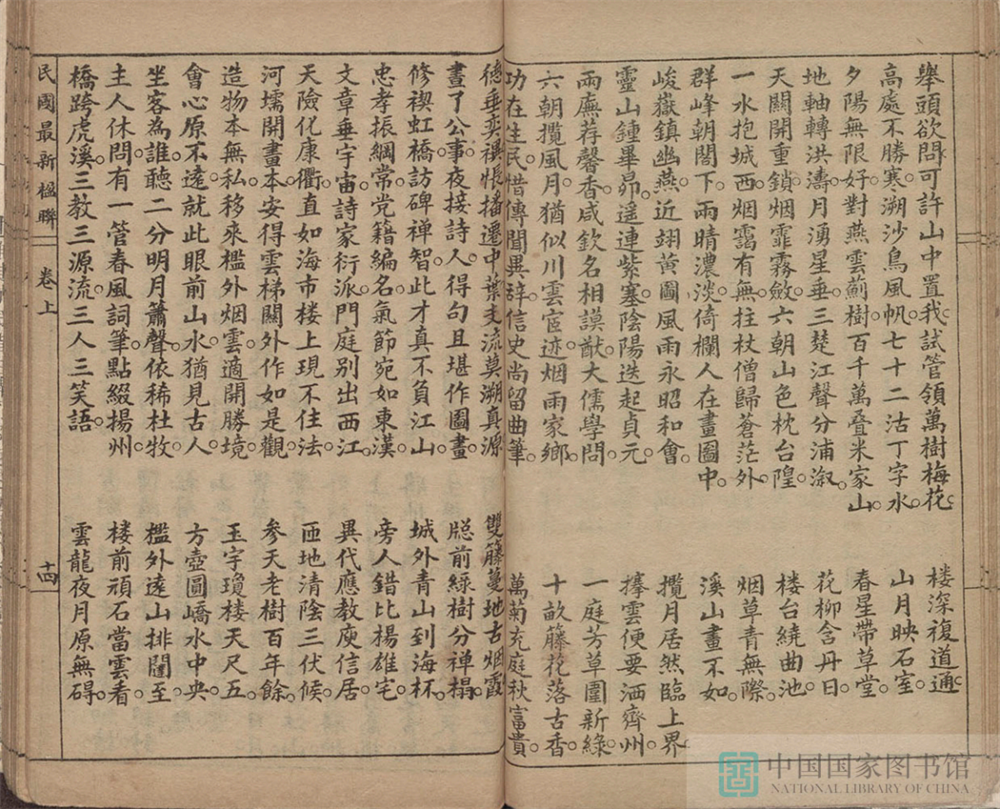 舉頭欲問。可許山中置我試管領萬樹梅花。
高處不勝寒。溯沙鳥風帆。七十二沽丁字水。
夕陽無限好。對燕雲薊樹。百千萬叠米家山。
地軸轉洪濤。月湧星垂。三楚江聲分浦溆。
天關開重鎖。烟霏霧斂。六朝山色枕台隍。
一水抱城西。烟靄有無。拄杖僧歸蒼茫外。
群峰朝閣下。雨晴濃淡。倚欄人在畫圖中。
峻嶽鎮幽燕。近翊黃圖風雨永昭和會。
靈山鍾畢昴。遥連紫塞。陰陽迭起貞元。
兩廡荐馨香。咸欽名相謨猷。大儒學問。
六朝攬風月。猶似川雲宦迹。烟雨家鄉。
功在生民。惜傳聞異辞。信史尚留曲筆。
楼深複道通。
山月映石室。
春星帶草堂。
花柳含丹日。
楼台繞曲池。
烟草青無際。
溪山畫不如。
攬月居然臨上界。
擘雲便要洒齊州。
一庭芳草圍新綠。
十畝籐花落古香。
萬菊充庭秋富貴。
德垂奕禩。悵播遷中葉支流莫溯真源
晝了公事。夜接詩人。得句且堪作圖畫。
修禊虹橋。訪碑禅智。此才真不負江山。
忠孝振綱常。党籍編名。氣節宛如東漢。
文章垂宇宙。詩家衍派。門庭别出西江。
天險化康衢。直如海市楼上。現不住法
河壖開畫本。安得雲梯關外。作如是觀。
造物本無私。移來檻外烟雲。適開勝境
會心原不遠。就此眼前山水。猶見古人。
坐客為誰。聽二分明月蕭聲。依稀杜牧
主人休問。有一管春風詞筆。點綴揚州。
橋跨虎溪。三教三源流。三人三笑語
雙籐蔓地古烟霞
牕前綠樹分禅榻。
城外青山到海杯。
旁人錯比楊雄宅
異代應教庾信居
匝地清陰三伏候
參天老樹百年餘。
玉宇瓊楼天尺五
方壺圖嶠水中央
檻外遠山排闥至
楼前頑石當雲看
雲龍夜月原無碍。
民國最新楹聯
卷上
十四
中国国家图书馆
NATIONAL LIBRARY OF CHINA